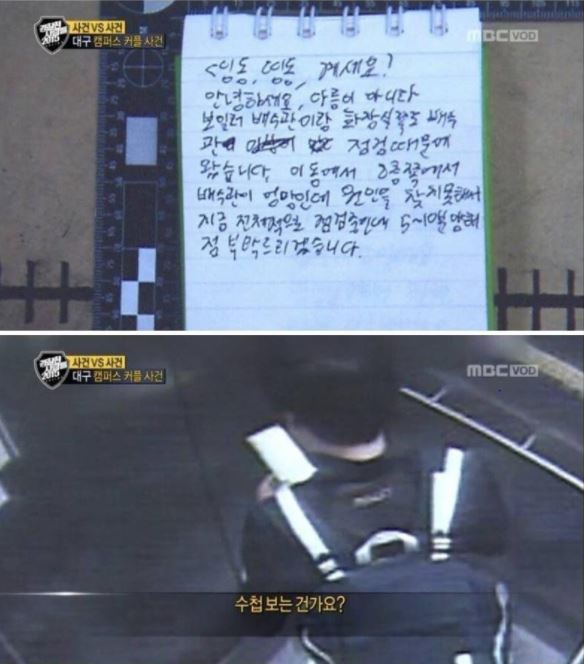 사건 VS 사건
대구 캠퍼스 커플 사건
MBC VOD
<띵동, 띵동, 계세요?
안녕하세요, 다름이 아니라
보일러 배수관이랑 화장실쪽 배수
관 점검때문에
왔습니다. 이동에서 2층쪽에서
배수관이 엉망인데 원인을 찾지못해서
지금 전체적으로 점검중인데 5~10분 양해
점 부탁드리겠습니다.
사건 VS 사건
대구 캠퍼스 커플 사건
MBC VOD
수첩 보는 건가요?